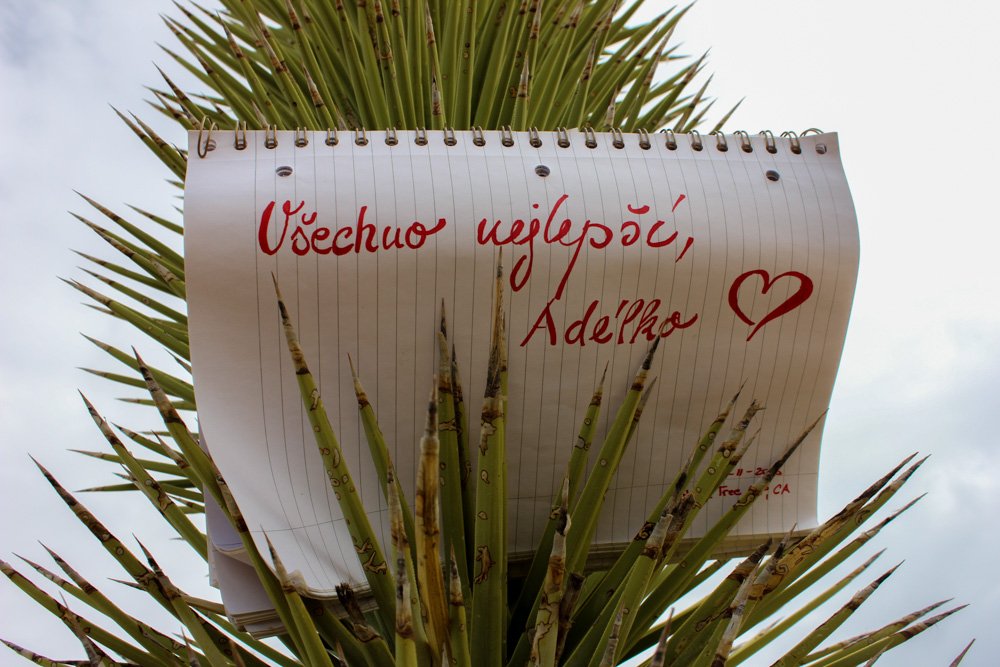 Všechno nejlepší,
Adélko
Tree, CA